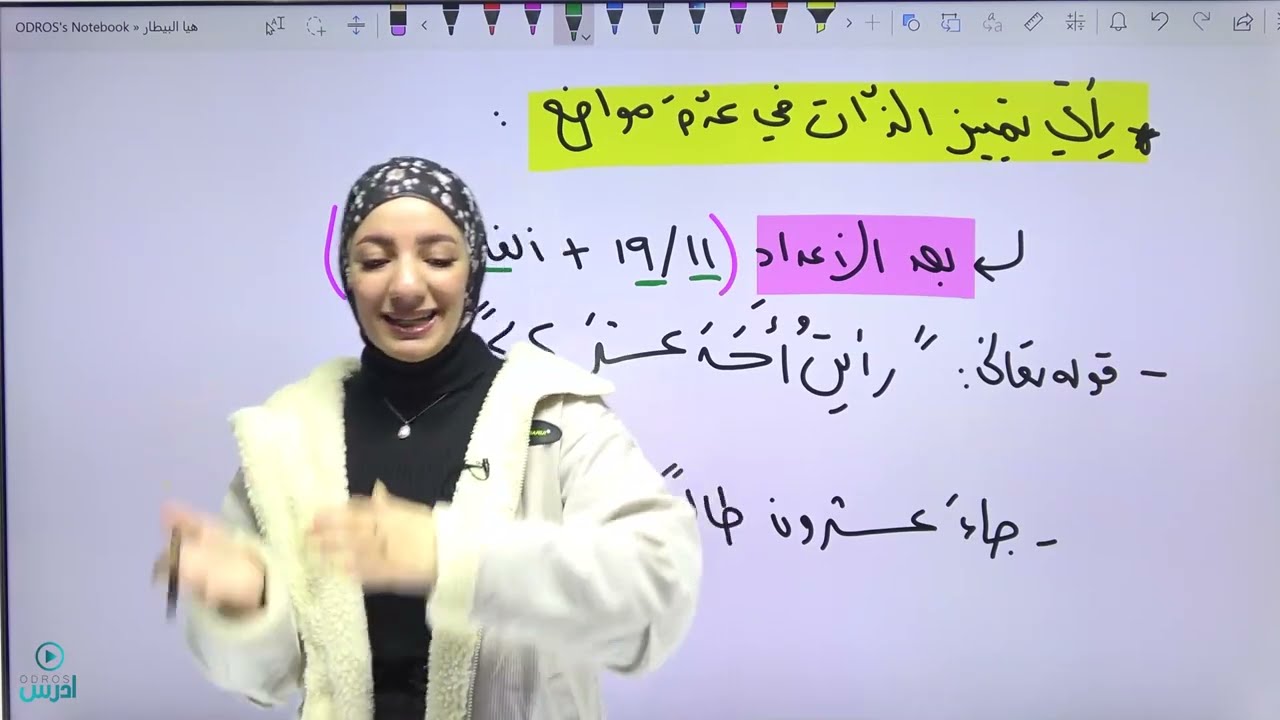 ODROS's Notebook » هيا البيطار
* يأتي تمييز الذّات في عدّة مواضع :
بعد الأعداد (11/19 +
- قوله تعالى: " رأيتُ أَحَدَ عشرَ
- جاءَ عشرون
ODROS
ادرس